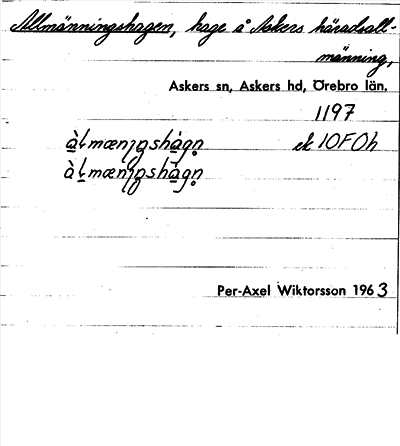 Allmänningshagen, hage å Askers häradsall-
männing,
Askers sn, Askers hd, Örebro län.
1197
àlmæniŋshàgn̥ ek 10F0h
àlmæniŋshàgn̥
Per-Axel Wiktorsson 1963